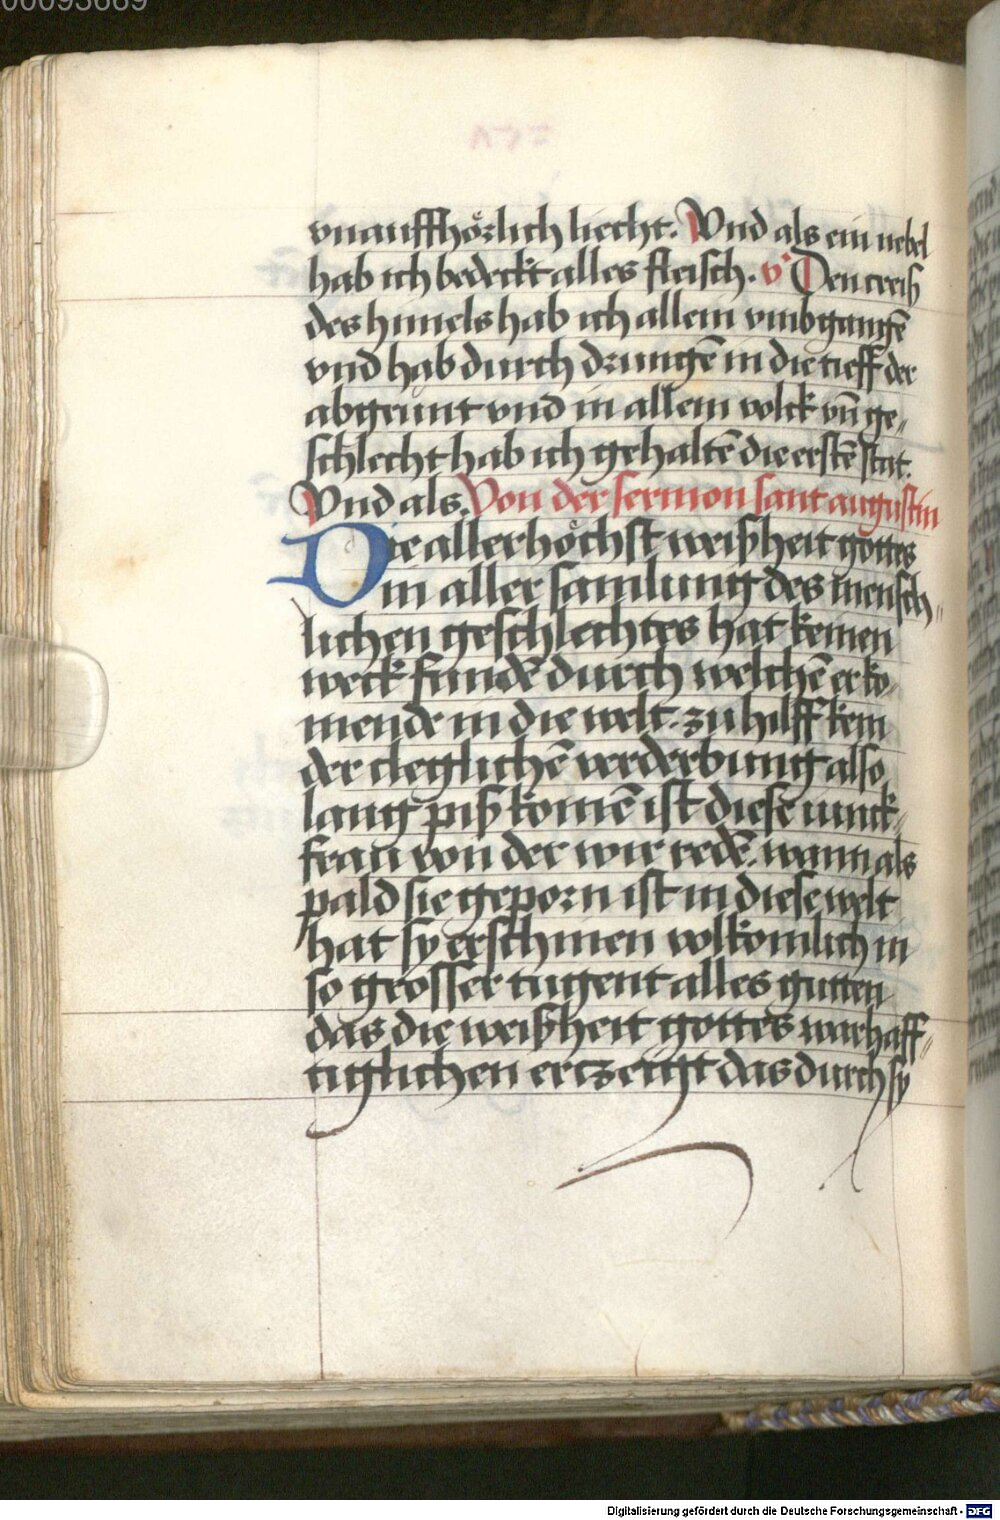 00093669
vnauffhoͤrlich liecht. Vnd als ein nebel
hab ich bedeckt alles fleisch. v̕ Den creiß
des himels hab ich allein vmbgangē
vnd hab durch drungē in die tieff der
abgrunt vnd in allem volck vn̄ ge„
schlecht hab ich gehaltē die erstē stat.
Vnd als. Von der sermon sant augustin
Die allerhoͤchst weißheit gottes
in aller samlung des mensch„
lichen geschlechtes hat keinen
weck fundē durch welchē er ko„
mende in die welt. zu hilff kem
der cleglichē verderbung also
lang piß komē ist diese iunck„
frau von der wir redē. wann als
pald sie geporn ist in diese welt
hat sy erschinen volkomlich in
so grosser tugent alles gutten
das die weißheit gottes warhaff„
tiglichen erczeigt das durch sy
Digitalisierung gefördert durch die Deutsche Forschungsgemeinschaft - DFG